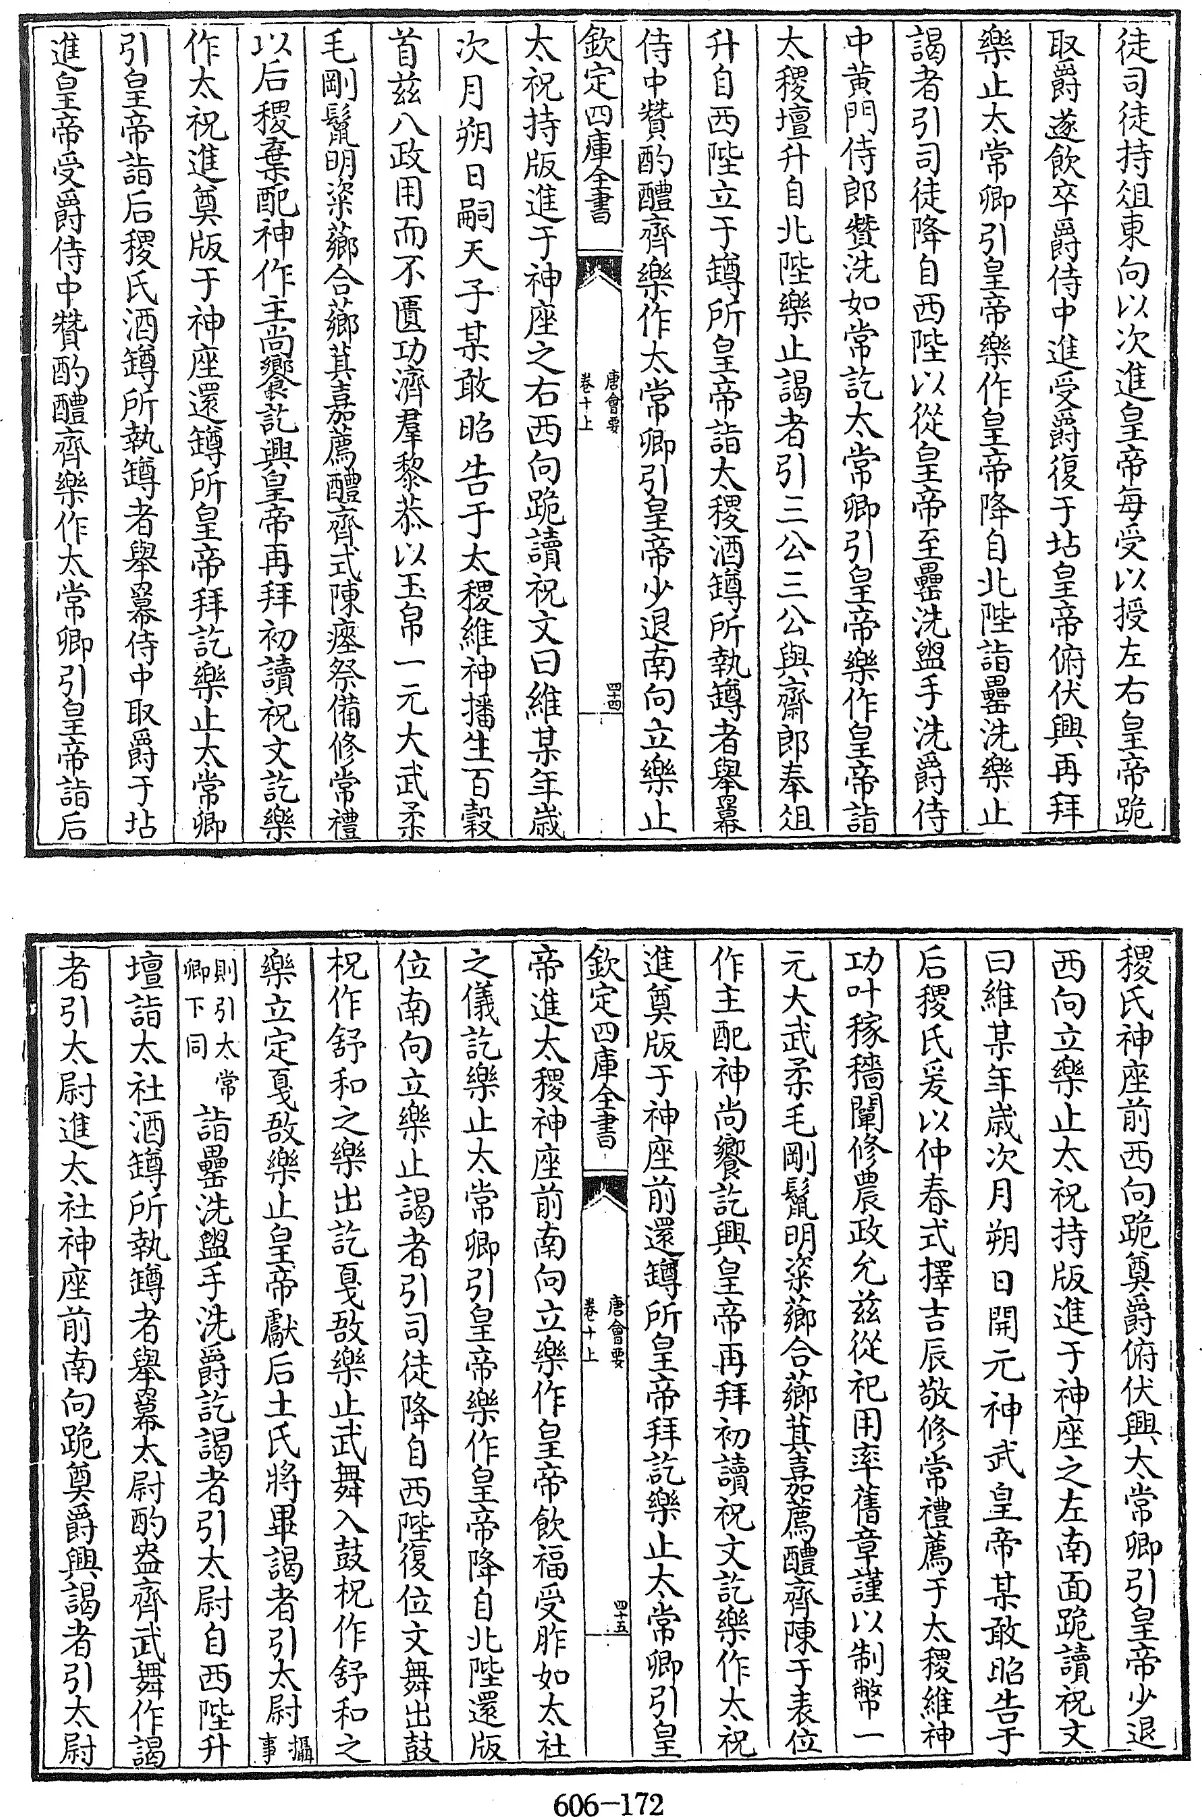 徒司徒持俎東向以次進皇帝每受以授左右皇帝跪
取爵遂飲卒爵侍中進受爵復于坫皇帝俯伏興再拜
樂止太常卿引皇帝樂作皇帝降自北陛詣罍洗樂止
謁者引司徒降自西陛以從皇帝至罍洗盥手洗爵侍
中黄門侍郎贊洗如常訖太常卿引皇帝樂作皇帝詣
太稷壇升自北陛樂止謁者引三公三公與齋郎奉俎
升自西陛立于罇所皇帝詣太稷酒罇所執罇者舉羃
侍中贊酌醴齊樂作太常卿引皇帝少退南向立樂止
欽定四庫全書
唐會要
卷十上
四十四
太祝持版進于神座之右西向跪讀祝文曰維某年歳
次月朔日嗣天子某敢昭告于太稷維神播生百穀
首兹八政用而不匱功濟羣黎恭以玉帛一元大武柔
毛剛鬣明粢薌合薌萁嘉薦醴齊式陳瘞祭備修常禮
以后稷棄配神作主尚饗訖興皇帝再拜初讀祝文訖樂
作太祝進奠版于神座還罇所皇帝拜訖樂止太常卿
引皇帝詣后稷氏酒罇所執罇者舉羃侍中取爵于坫
進皇帝受爵侍中贊酌醴齊樂作太常卿引皇帝詣后
稷氏神座前西向跪奠爵俯伏興太常卿引皇帝少退
西向立樂止太祝持版進于神座之左南面跪讀祝文
曰維某年歳次月朔日開元神武皇帝某敢昭告于
后稷氏爰以仲春式擇吉辰敬修常禮薦于太稷維神
功叶稼穡闡修農政允兹從祀用率舊章謹以制幣一
元大武柔毛剛鬣明粢薌合薌萁嘉薦醴齊陳于表位
作主配神尚饗訖興皇帝再拜初讀祝文訖樂作太祝
進奠版于神座前還罇所皇帝拜訖樂止太常卿引皇
欽定四庫全書
唐會要
卷十上
四十五
帝進太稷神座前南向立樂作皇帝飲福受胙如太社
之儀訖樂止太常卿引皇帝樂作皇帝降自北陛還版
位南向立樂止謁者引司徒降自西陛復位文舞出鼓
柷作舒和之樂出訖戛敔樂止武舞入鼓柷作舒和之
樂立定戛敔樂止皇帝獻后土氏將畢謁者引太尉攝事
則引太常卿下同詣罍洗盥手洗爵訖謁者引太尉自西陛升
壇詣太社酒罇所執罇者舉羃太尉酌盎齊武舞作謁
者引太尉進太社神座前南向跪奠爵興謁者引太尉
606-172